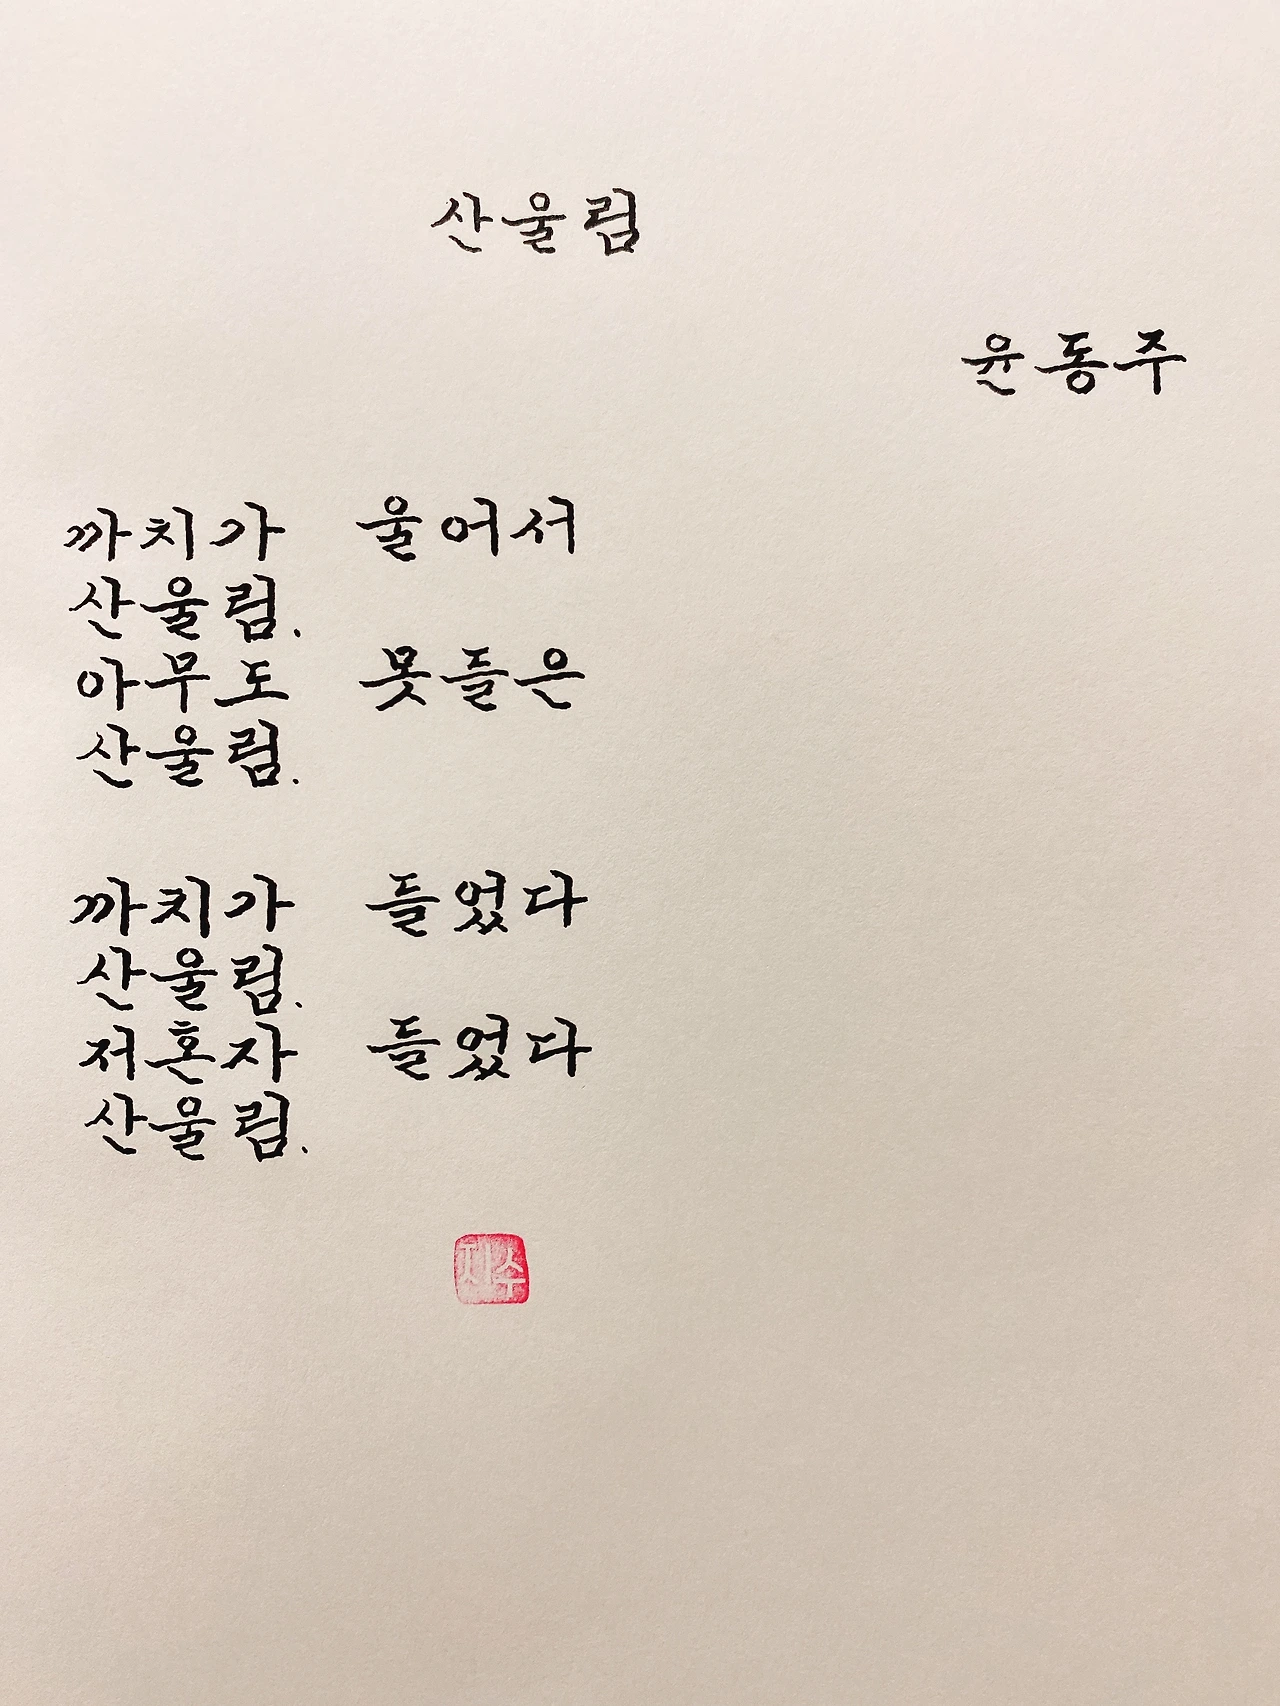 산울림
윤동주
까치가 울어서
산울림.
아무도 못들은
산울림.
까치가 들었다
산울림.
저혼자 들었다
산울림.
지수